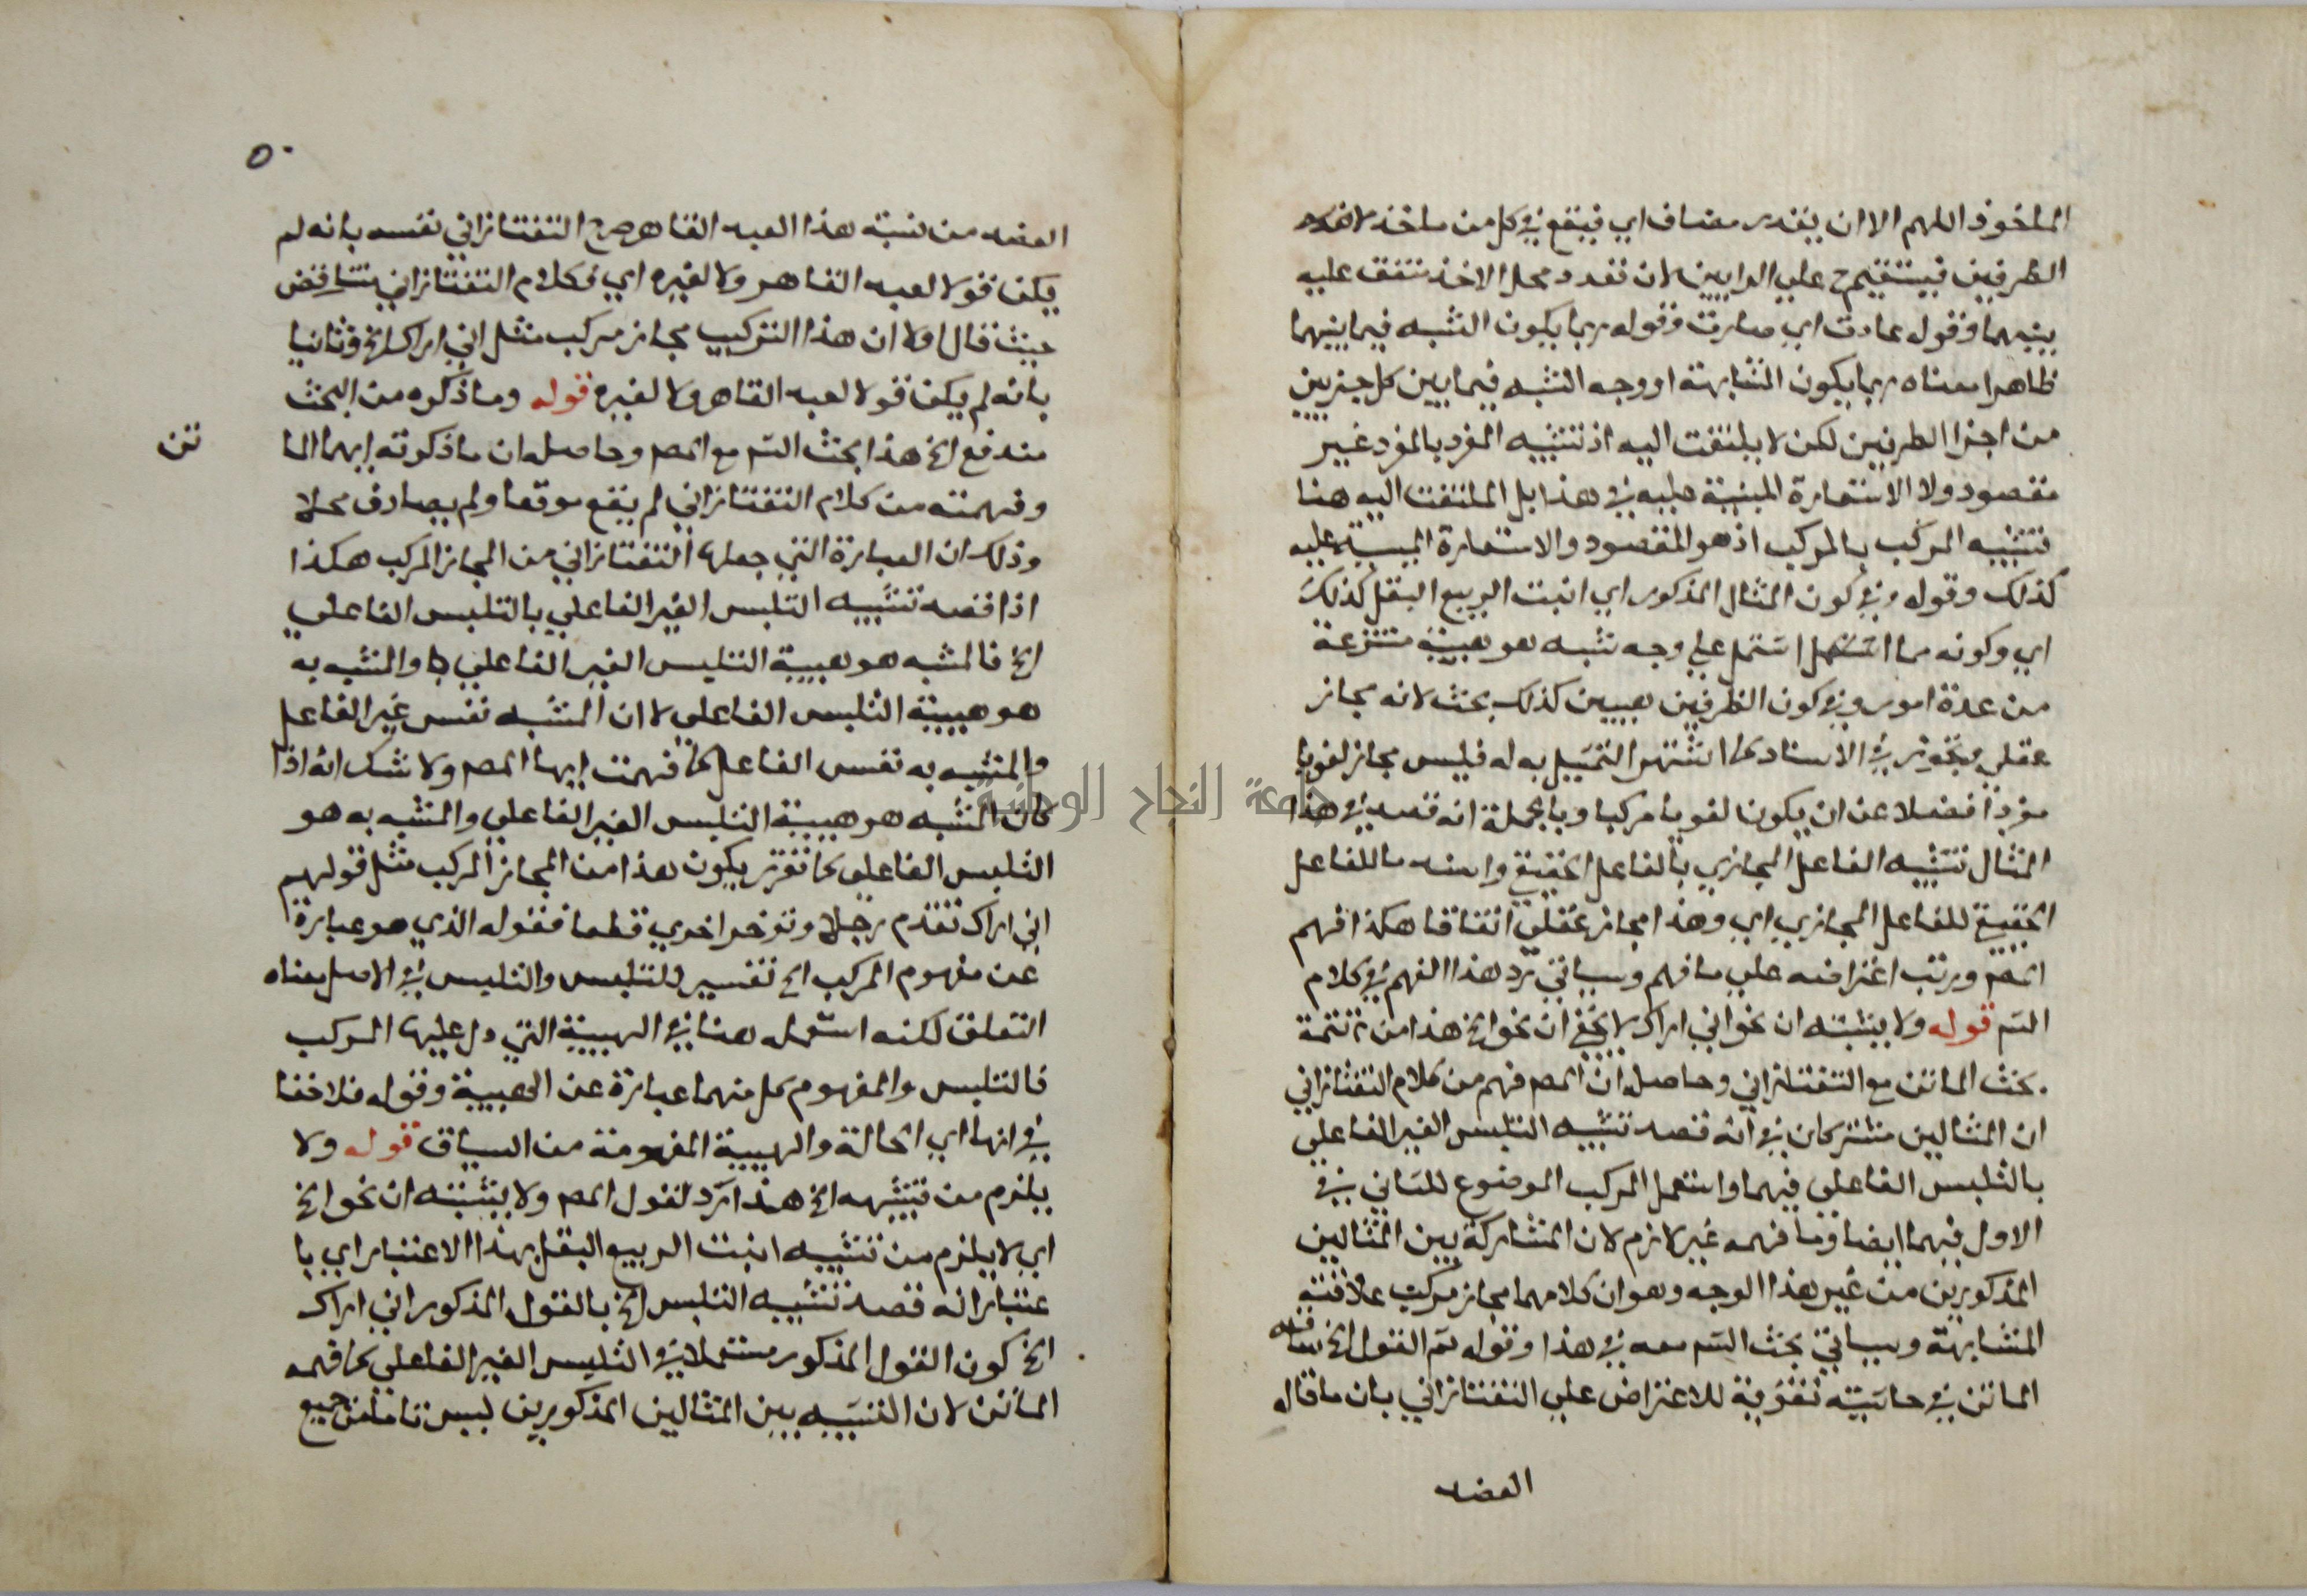 الملخوذ اللهم الا ان يقدر مضاف اي فيقع في كل من ماخذ
الطرفين فيستقيم ح علي الرايين لان تعدد محل الاخذ متفق عليه
بينهما وقوله عادت اي صارت وقوله ربما يكون الشبه فيما بينهما
ظاهرا معناه ربما يكون المشابهة او وجه الشبه فيما بين كل جزيين
من اجزا الطرفين لكن لا يلتفت اليه اذ تشبيه المفرد بالمفرد غير
مقصود ولا الاستعارة المبنية عليه في هذا بل الملتفت اليه هنا
تشبيه المركب بالمركب اذ هو المقصود والاستعارة المبنية عليه
كذلك وقوله وفي كون المثال المذكور اي انبت الربيع البقل كذلك
اي وكونه مما اشتمل علي وجه شبه هو هيية منتزعة
من عدة امور وفي كون الطرفين هييين كذلك بحث لانه مجاز
عقلي وتجوز في الاسناد كما اشتهر التمثيل به له فليس مجاز لغويا
مفردا فضلا عن ان يكون لغويا مركبا وبالجملة انه قصد في هذا
المثال تشبيه الفاعل المجازي بالفاعل الحقيقي واسند ما للفاعل
الحقيقي للفاعل المجازي اي وهذا مجاز عقلي اتفاقا هكذا فهم
المص ورتب اعتراضه علي ما فهم وسياتي رد هذا الفهم في كلام
الش قوله ولا يشبه ان نحو اني اراك لا يخفي ان نحو الخ هذا من تتمة
بحث الماتن مع التفتازاني وحاصله ان المص فهم من كلام التفتازاني
ان المثالين مشتركان في انه قصد تشبيه التلبس الغير الفاعلي
بالتلبس الفاعلي فيهما واستعمل المركب الموضوع للثاني في
الاول فيهما ايضا وما فهمه غير لازم لان المشاركة بين المثالين
المذكورين من غير هذا الوجه وهو ان كلامهما مجاز مركب علاقته
المشابهة وسياتي بحث الش معه في هذا وقوله ثم القول الخ
الماتن في حاشيته تقوية للاعتراض علي التفتازاني بان ما قاله
العضد
٥٠
العضد من نسبة هذا العبد القاهر صرح التفتازاني نفسه بانه لم
يكن قولا لعبد القاهر ولا لغيره اي فكلام التفتازاني متناقض
حيث قال اولا ان هذا التركيب مجاز مركب مثل اني اراك الخ وثانيا
بانه لم يكن قولا لعبد القاهر ولا لغيره قوله وما ذكره من البحث
مندفع الخ هذا بحث الش مع المص وحاصله ان ما ذكرته ايها الما
تن
وفهمته من كلام التفتازاني لم يقع موقعا ولم يصادف محلا
وذلك ان العبارة التي جعلها التفتازاني من المجاز المركب هكذا
اذا قصد تشبيه التلبس الغير الفاعلي بالتلبس الفاعلي
الخ فالمشبه هو هيية التلبس الغير الفاعلي والمشبه به
هو هيية التلبس الفاعلي لا ان المشبه نفس غير الفاعل
والمشبه به نفس الفاعل كما فهمت ايها المص ولا شك انه اذا
كان المشبه هو هيية التلبس الغير الفاعلي والمشبه به هو
التلبس الفاعلي كما تقرر يكون هذا من المجاز المركب مثل قولهم
اني اراك تقدم رجلا وتوخر اخري قطعا فقوله الذي هو عبارة
عن مفهوم المركب الخ تفسير للتلبس والتلبس في الاصل معناه
التعلق لكنه استعمله هنا في الهيية التي دل عليها المركب
فالتلبس والمفهوم كل منهما عبارة عن الهيية وقوله فلا خفا
في انها اي الحالة والهيية المفهومة من السياق قوله ولا
يلزم من تشبيهه الخ هذا رد لقول المص ولا يشبه ان نحو الخ
اي لا يلزم من تشبيه انبت الربيع البقل بهذا الاعتبار اي با
عتبار انه قصد تشبيه التلبس الخ بالقول المذكور اني اراك
الخ كون القول المذكور مستعملا في التلبس الغير الفاعلي كما فهمه
الماتن لان التشبيه بين المثالين المذكورين ليس تاما من جميع
جامعة النجاح الوطنية